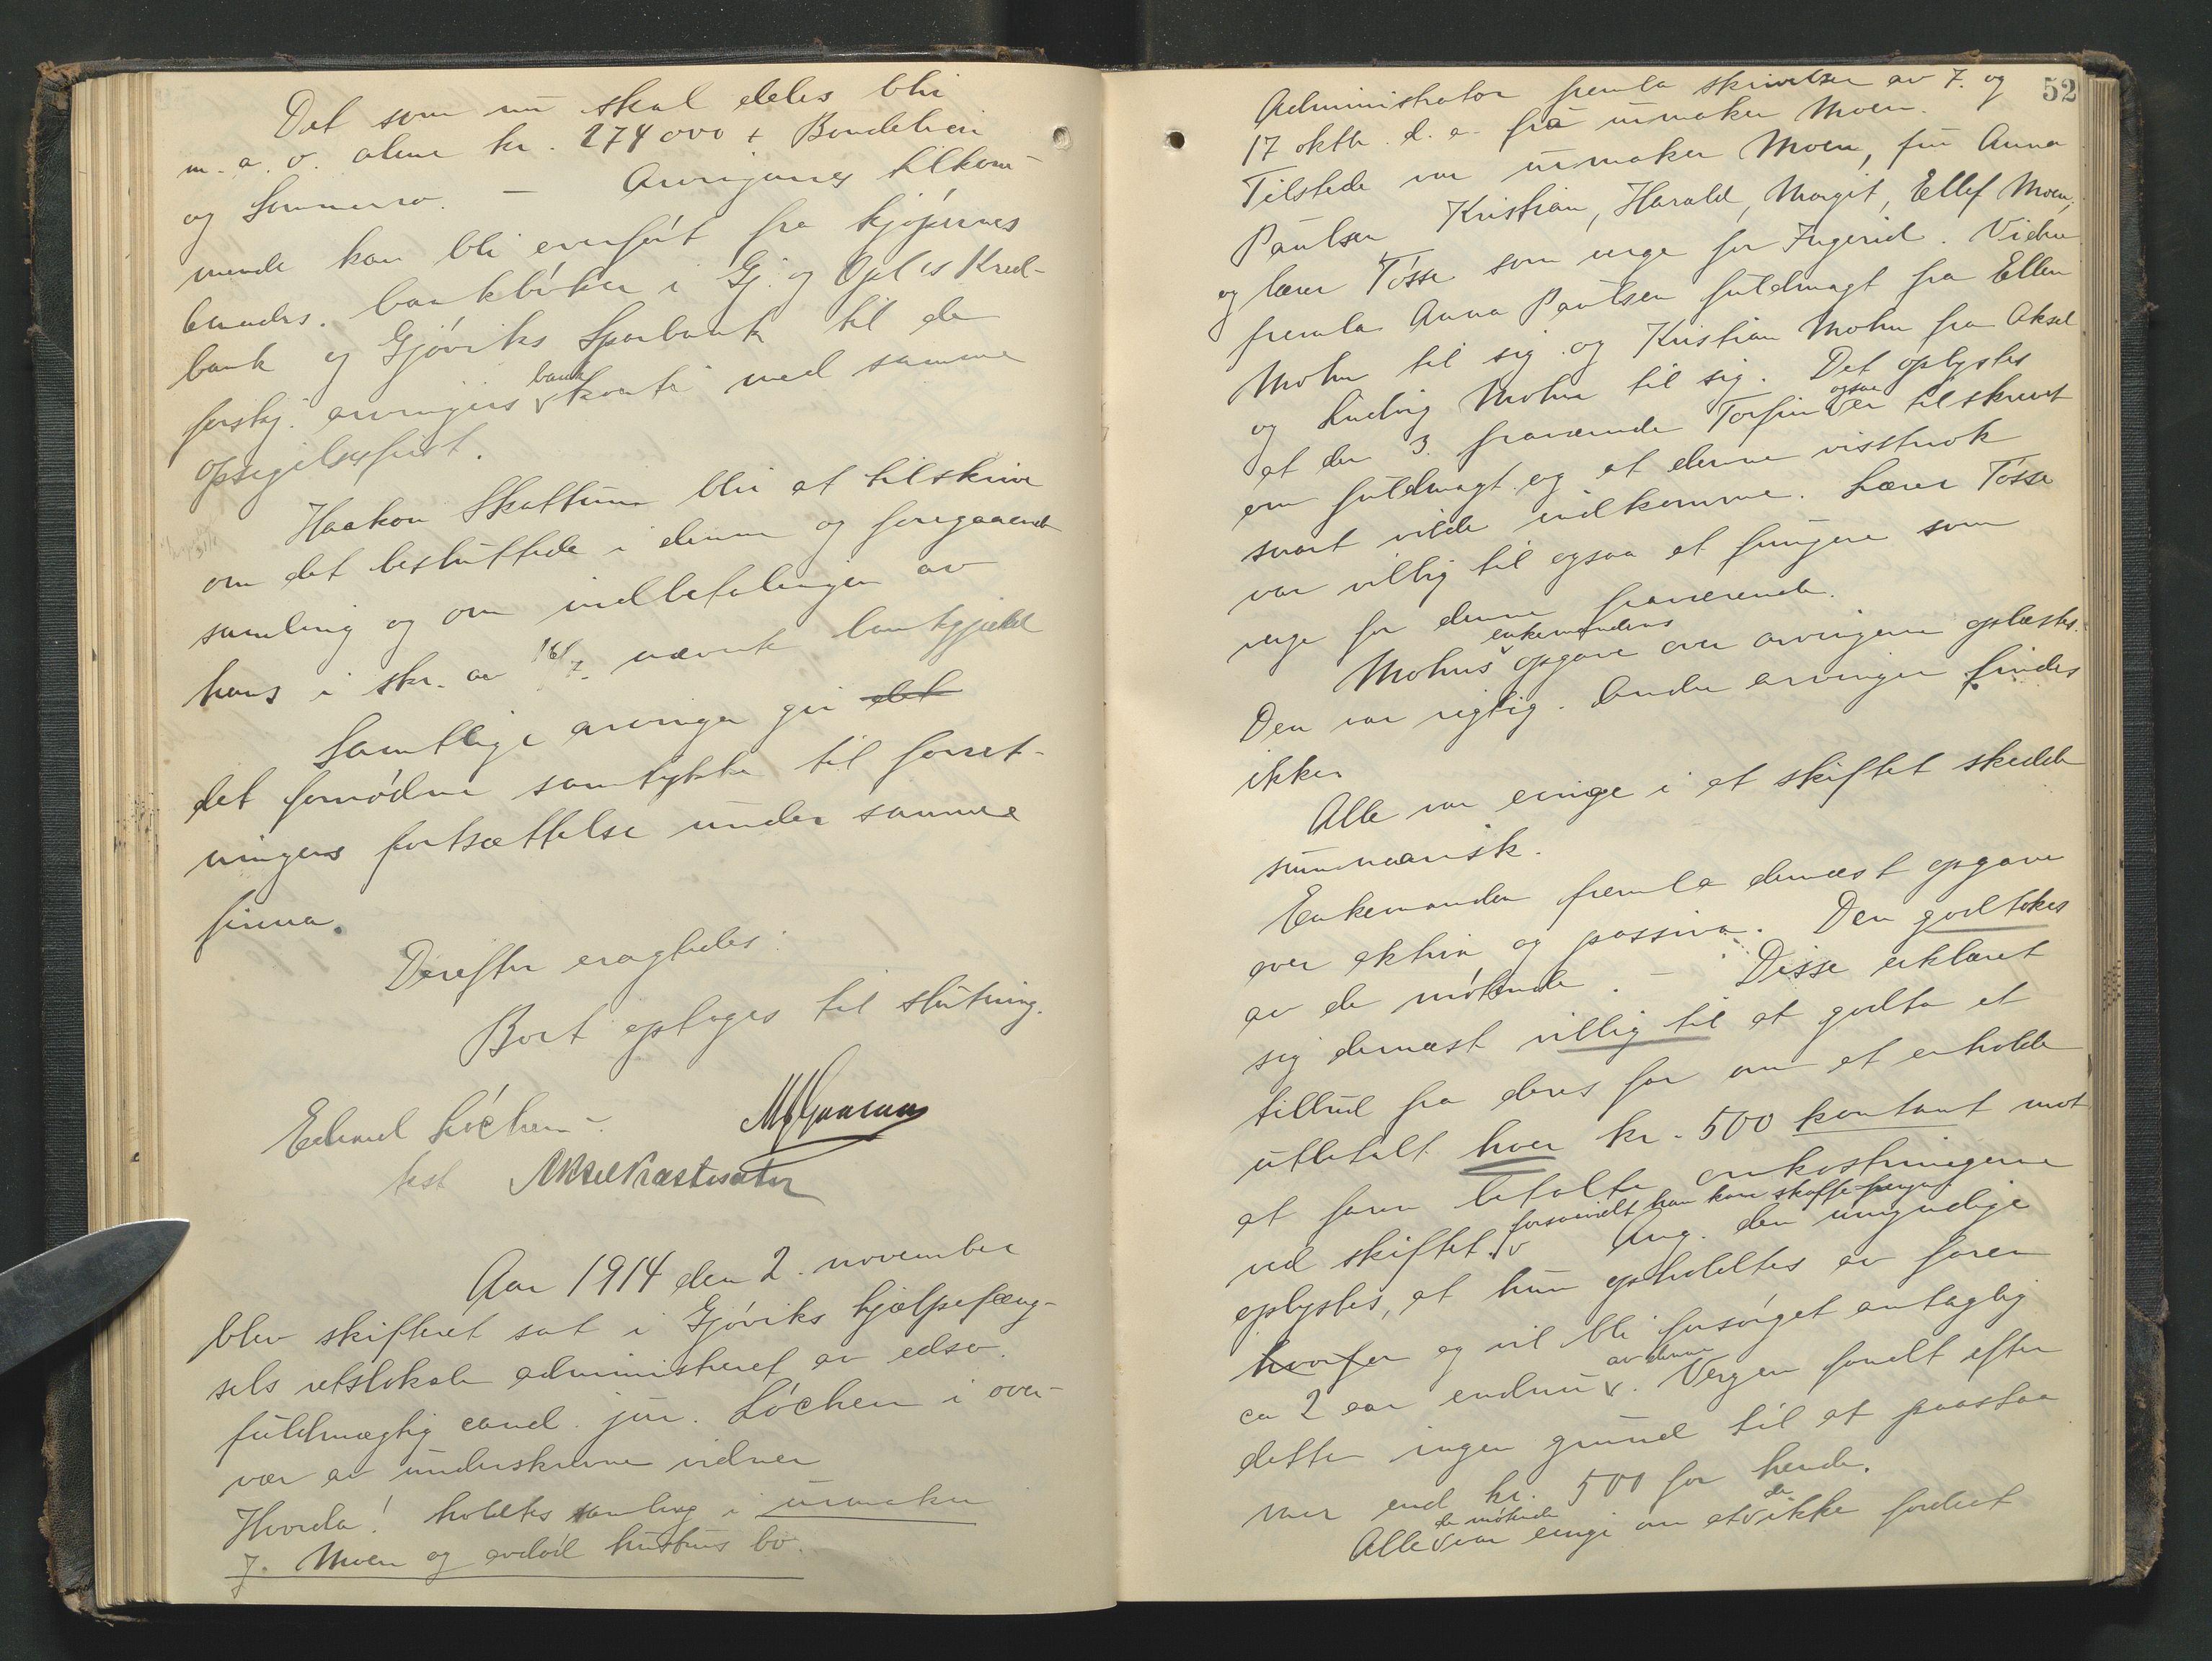 Det som nu skal deles blir
m. a. o. alene kr. 274 000 + Bondelien
og Sommero. — Arvingenes tilkom-
mende kan bli overført fra kjøpernes
bankbøker i Gj. og Opl.s Kred-
bank og Gjøviks Sparbank til de
forskj. arvingers bank konti med samme
opsigelsesfrist.
Haakon Skattum blir at tilskrive
om det besluttede i denne og foregaaende
samling og om indbetalingen av
hans i skr. av nævnte bankgjæld
Samtlige arvinger gir det
det fornødne samtykke til forret-
ningens fortsættelse under samme
firma.
Derefter eragtedes:
Boet optages til slutning.
Edvard Løchen
kst
Aar 1914 den 2. november
blev skifteret sat i Gjøviks hjælpefæng-
sels retslokale administreret av edsv.
fuldmægtig cand. jur. Løchen i over-
vær av underskrevne vidner
Hvorda! holdtes samling i urmaker
J. Moen og avdød hustrus bo.
52
Administrator fremla skrivelser av 7. og
17 oktbr. d. a. fra urmaker Moen.
Tilstede var urmaker Moen, fru Anna
Paulsen Kristian, Harald, Margit, Ellef Moen,
og lærer Tøsse som verge for Ingerid. Videre
fremla Anna Paulsen fuldmagt fra Ellen
Mohn til sig og Kristian Mohn fra Aksel
og Ludvig Mohn til sig. Det oplystes
at den 3. fraværende Torfin ogsaa var tilskrevet
om fuldmagt og at denne visstnok
snart vilde indkomme. Lærer Tøsse
var villig til ogsaa at fungere som
verge for denne fraværende.
Mohns enkemandens opgave over arvingerne oplæstes.
Den var rigtig. Andre arvinger findes
ikke.
Alle var enige i at skiftet skedde
summarisk.
Enkemanden fremla dernæst opgave
over aktiva og passiva. Den godtokes
av de møtende. — Disse erklæret
sig dernæst villig til at godta et
tilbud fra deres far om at erholde
utbetalt hver kr. 500 kontant mot
at faren betalte omkostningerne
ved skiftet forsaavidt han kan skaffe penger. Ang. den umyndige
oplystes, at hun opholdtes av faren
hvorfor og vil bli forsørget antagelig
ca 2 aar endnu av denne. Vergen fandt efter
dette ingen grund til at paastaa
mer end kr. 500 for hende.
Alle de møtende var enige om at de ikke fordret